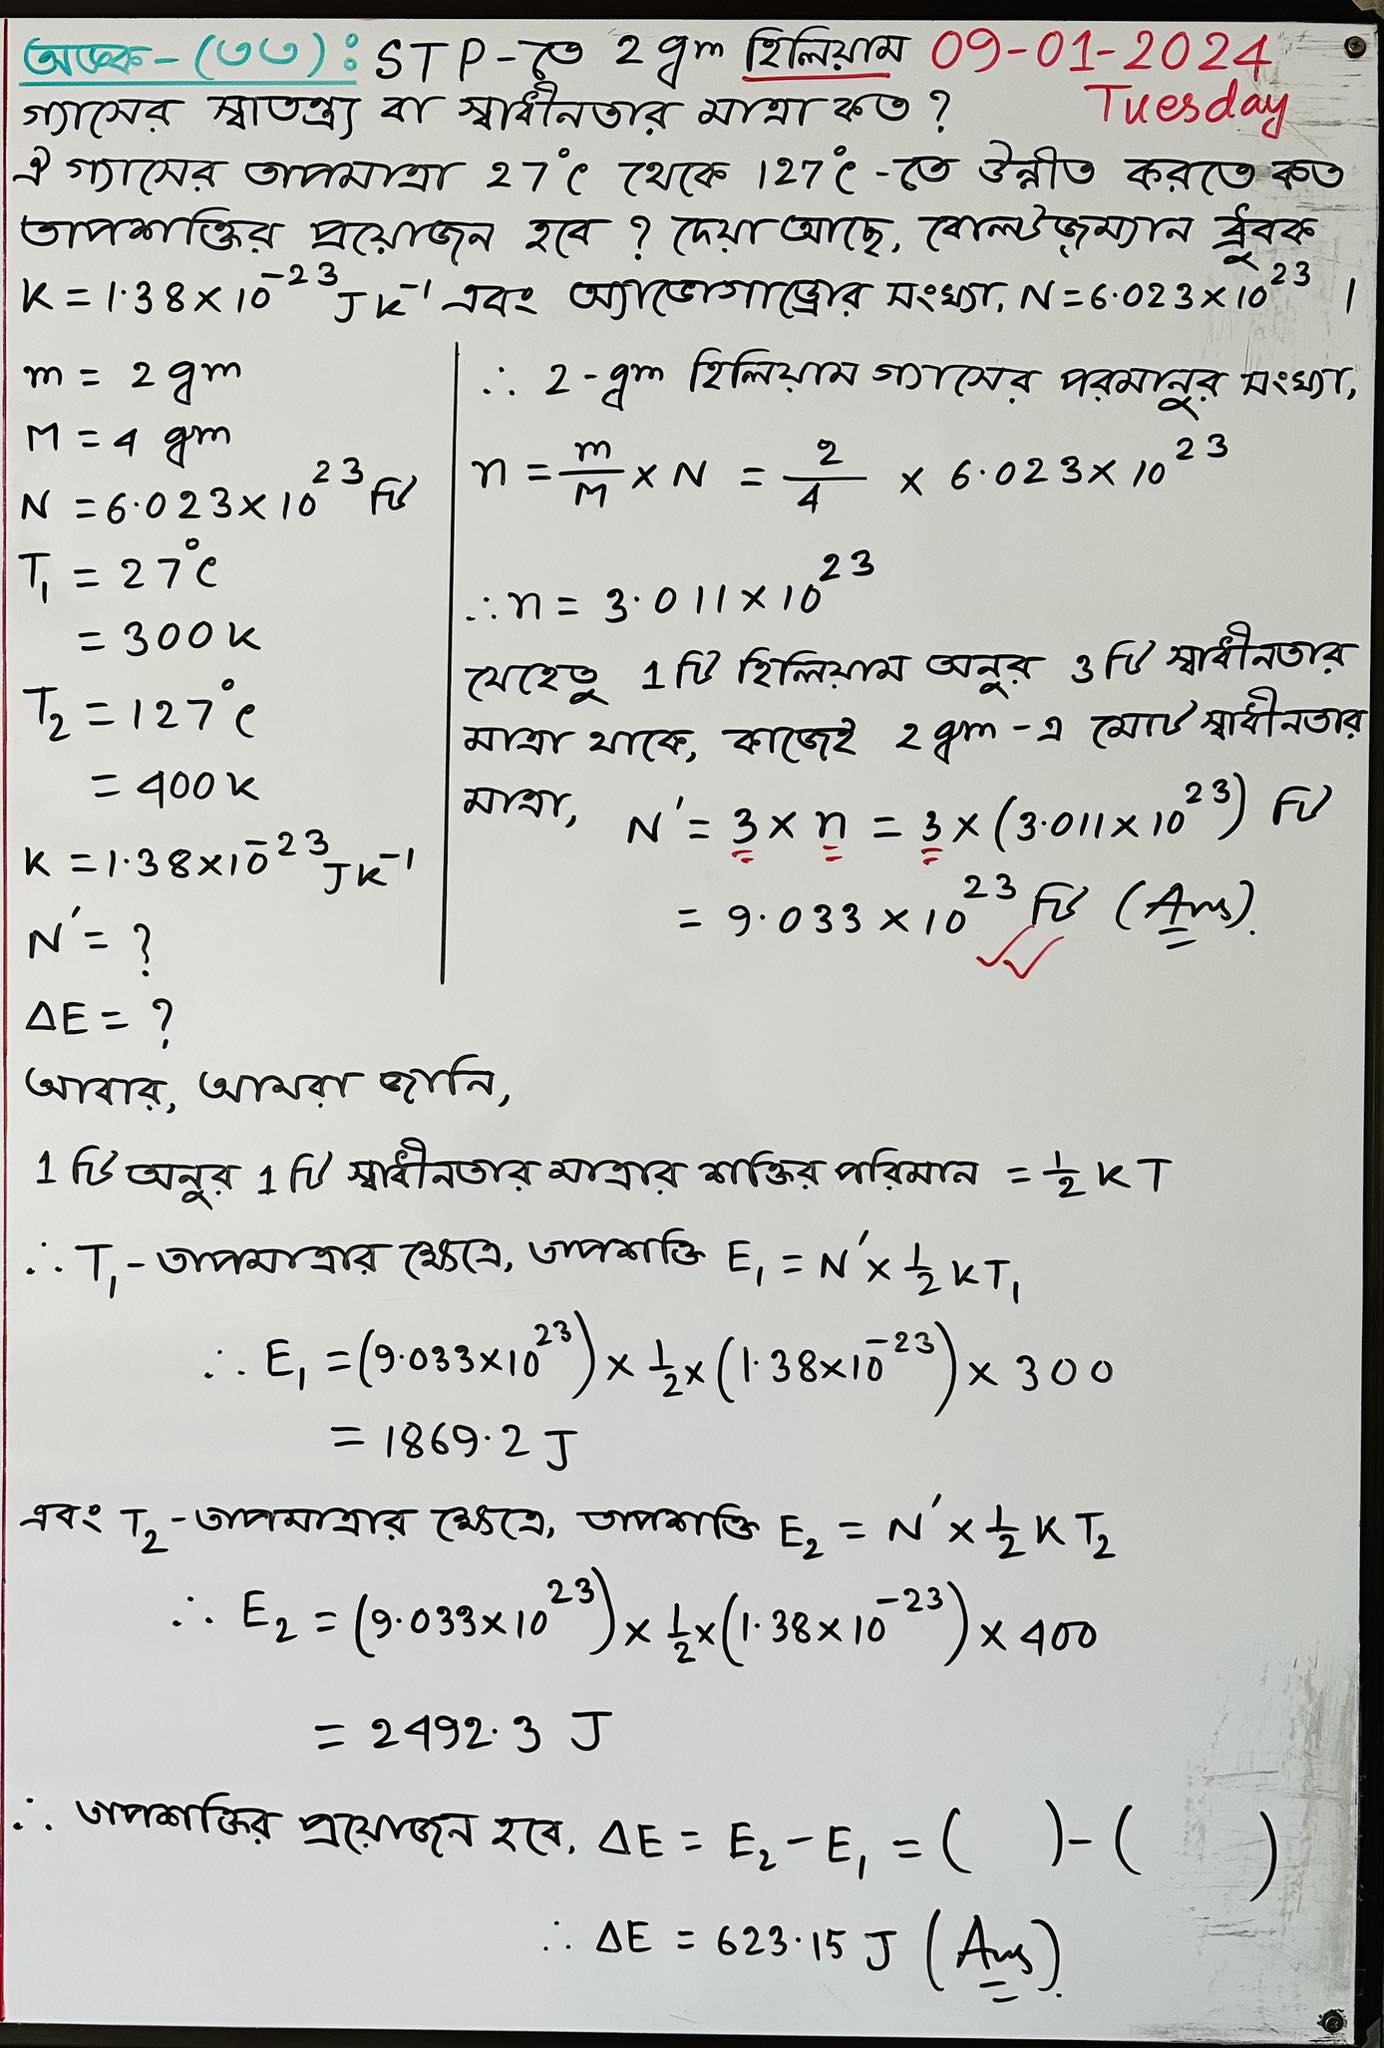 অঙ্ক-(৩৩): STP-তে 2 gm হিলিয়াম 09-01-2024
গ্যাসের স্বাতন্ত্র্য বা স্বাধীনতার মাত্রা কত ? Tuesday
ঐ গ্যাসের তাপমাত্রা 27°C থেকে 127°C-তে উন্নীত করতে কত
তাপশক্তির প্রয়োজন হবে ? দেয়া আছে, বোল্টজ্ম্যান ধ্রুবক
K = 1.38 × 10⁻²³ J K⁻¹ এবং অ্যাভোগাড্রোর সংখ্যা, N = 6.023 × 10²³ ।
m = 2 gm
M = 4 gm
N = 6.023 × 10²³ টি
T₁ = 27°C
= 300 K
T₂ = 127°C
= 400 K
K = 1.38 × 10⁻²³ J K⁻¹
N′ = ?
ΔE = ?
∴ 2-gm হিলিয়াম গ্যাসের পরমানুর সংখ্যা,
n = m/M × N = 2/4 × 6.023 × 10²³
∴ n = 3.011 × 10²³
যেহেতু 1 টি হিলিয়াম অনুর 3 টি স্বাধীনতার
মাত্রা থাকে, কাজেই 2 gm-এ মোট স্বাধীনতার
মাত্রা, N′ = 3 × n = 3 × (3.011 × 10²³) টি
= 9.033 × 10²³ টি (Ans).
আবার, আমরা জানি,
1 টি অনুর 1 টি স্বাধীনতার মাত্রার শক্তির পরিমান = ½ K T
∴ T₁-তাপমাত্রার ক্ষেত্রে, তাপশক্তি E₁ = N′ × ½ K T₁
∴ E₁ = (9.033 × 10²³) × ½ × (1.38 × 10⁻²³) × 300
= 1869.2 J
এবং T₂-তাপমাত্রার ক্ষেত্রে, তাপশক্তি E₂ = N′ × ½ K T₂
∴ E₂ = (9.033 × 10²³) × ½ × (1.38 × 10⁻²³) × 400
= 2492.3 J
∴ তাপশক্তির প্রয়োজন হবে, ΔE = E₂ - E₁ = ( ) - ( )
∴ ΔE = 623.15 J (Ans).